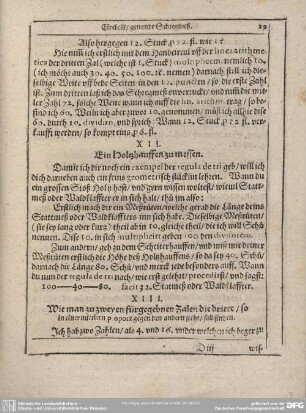 Circkels / genande Schregmeß. 29
Also hergegen 12. Stuck p 72. fl. wie 15
Hie nimm ich erstlich mit dem Handtzirckel vff der linea arithme
tica der dritten Zal (welche ist multiplicem, nemlich 10.
(ich möchte auch 30. 40. 50. 100. rc. nemen) darnach stell ich die-
selbige Weite vff bede Seiten in 12. puncten / so die erste Zahl
ist. Zum dritten laß ich das Schregmeß
Zahl 72. solche Weite wann ich auff die lin. arithm. trag / so be-
find ich 60. Weiln ich aber zwey 10. genommen /
60. durch 10. dividirn / und sprich: Wann 12. Stuck p 72. fl. ver-
kaufft werden / so kompt eins p 6. fl.
XII.
Ein Holtzhauffen zu messen.
Damit ich dir noch ein exempel der regula de tri geb / will ich
dich darneben auch ein seins geometrisch stücklin lehren. Wann du
ein grossen Stoß Holtz hast / und gern wissen woltest / wieviel Statt-
meß oder Waldklaffter er in sich hab / thu jm also:
Erstlich mach dir ein Meßruten / welche gerad die Länge deins
Stattmeß oder Waldklaffters inn sich hab. Dieselbige Meßruten /
(sie sey lang oder kurtz) theil ab in 10. gleiche theil / die ich will Schü
nennen. Diese 10. in sich multiplicirt geben 100 den divisorem.
Zum andern / geh zu dem Scheiterhauffen / und miß mit deiner
Meßruten erstlich die Höhe deß Holtzhauffens / so da sey 40. Schü /
darnach die Länge 80. Schü / und merck jede besonders auff. Wann
du nun der regula de tri nach / wie erst gelehrt / procedirst / und sagst:
100——40——80. facit 32. Stattmeß oder Waldklaffter.
XIII.
Wie man zu zweyen fürgegebnen Zalen die dritte / so
in einer gegen den andern steht / soll finden.
Ich hab zwo Zahlen / als 4. und 16. wider welchen ich beger zu
D iij wis-